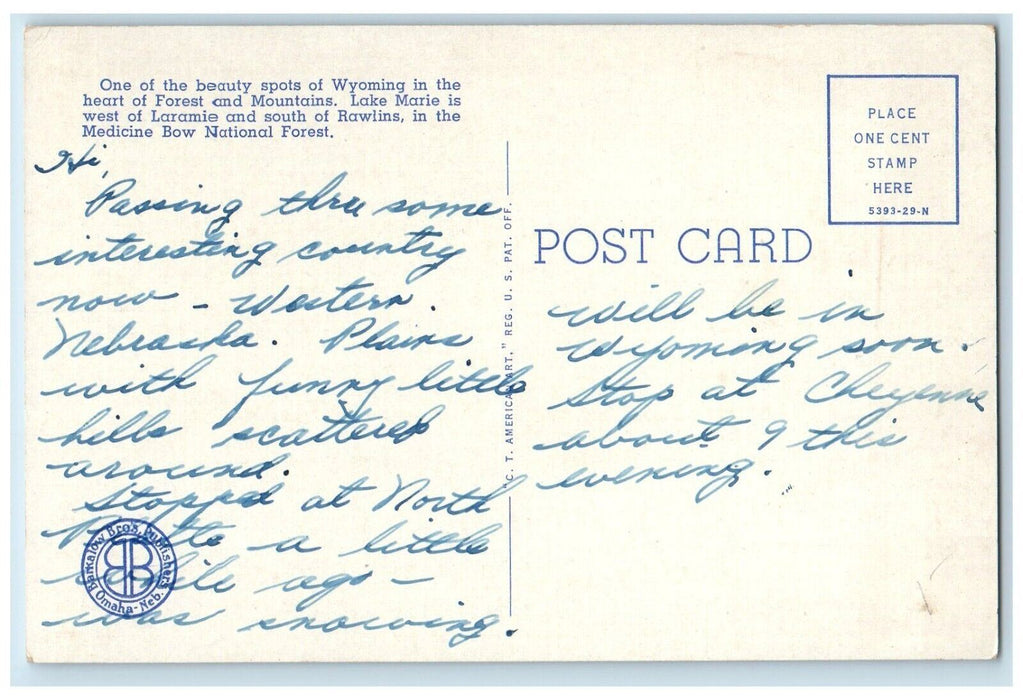 One of the beauty spots of Wyoming in the
heart of Forest and Mountains. Lake Marie is
west of Laramie and south of Rawlins, in the
Medicine Bow National Forest.
Hi,
Passing thru some
interesting country
now - Western
Nebraska. Plains
with funny little
hills scattered
around.
Stopped at North
Platte a little
while ago -
was snowing.
Barkalow Bros. Publishers
BB
Omaha-Neb.
"C. T. AMERICAN ART," REG. U. S. PAT. OFF.
PLACE
ONE CENT
STAMP
HERE
5393-29-N
POST CARD
will be in
Wyoming soon.
Stop at Cheyenne
about 9 this
evening.